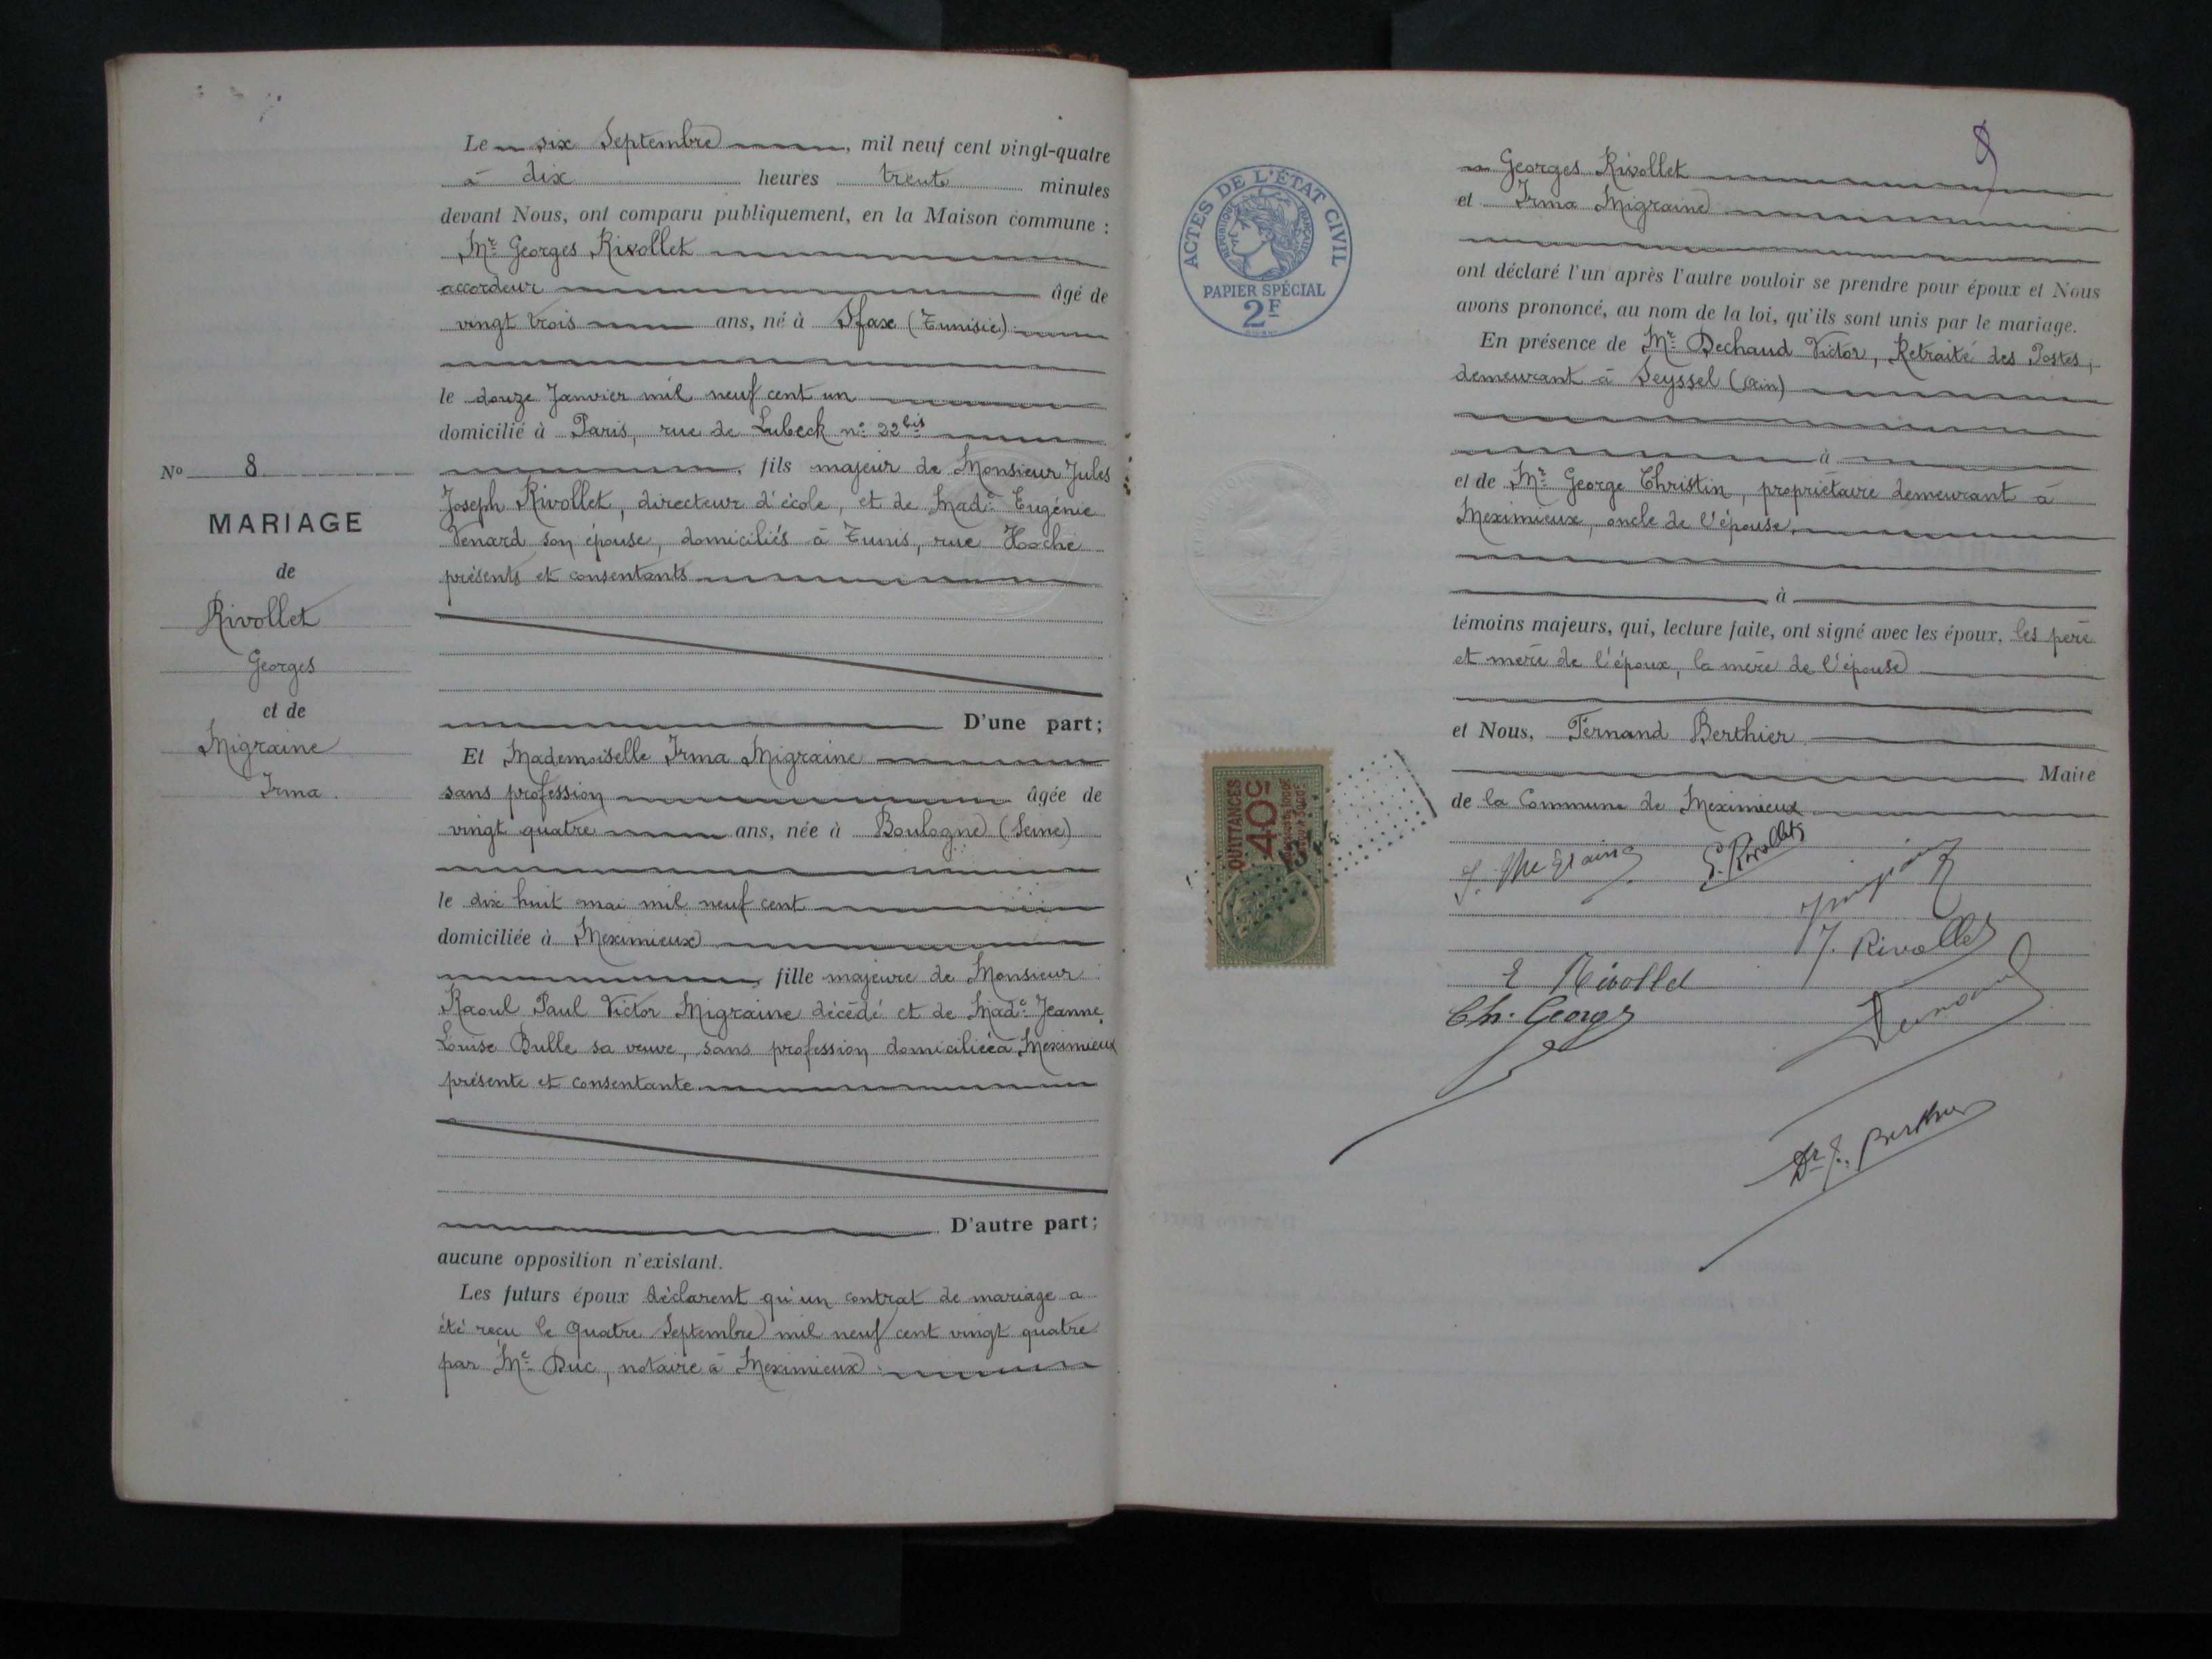 Le six Septembre, mil neuf cent vingt-quatre
à dix heures trente minutes
devant Nous, ont comparu publiquement, en la Maison commune :
Mr Georges Rivollet
accordeur âgé de
vingt trois ans, né à Sfax (Tunisie)
le douze Janvier mil neuf cent un
domicilié à Paris, rue de Lubeck no 22 bis
, fils majeur de Monsieur Jules
Joseph Rivollet, directeur d'école, et de Made Eugénie
Venard son épouse, domiciliés à Tunis, rue Hoche
présents et consentants
D'une part;
Et Mademoiselle Irma Migraine
sans profession âgée de
vingt quatre ans, née à Boulogne (Seine)
le dix huit mai mil neuf cent
domiciliée à Meximieux
, fille majeure de Monsieur
Raoul Paul Victor Migraine décédé et de Made Jeanne
Louise Bulle sa veuve, sans profession domiciliée à Meximieux
présente et consentante
D'autre part;
aucune opposition n'existant.
Les futurs époux déclarent qu'un contrat de mariage a
été reçu le Quatre Septembre mil neuf cent vingt quatre
par Me Duc, notaire à Meximieux
No 8
MARIAGE
de
Rivollet
Georges
et de
Migraine
Irma.
8
ACTES DE L'ÉTAT CIVIL
RÉPUBLIQUE FRANÇAISE
PAPIER SPÉCIAL
2F
Georges Rivollet
et Irma Migraine
ont déclaré l'un après l'autre vouloir se prendre pour époux et Nous
avons prononcé, au nom de la loi, qu'ils sont unis par le mariage.
En présence de Mr Dechaud Victor, Retraité des Postes,
demeurant à Seyssel (Ain)
à
et de Mr George Christin, propriétaire demeurant à
Meximieux, oncle de l'épouse.
à
témoins majeurs, qui, lecture faite, ont signé avec les époux, les père
et mère de l'époux, la mère de l'épouse
et Nous, Fernand Berthier
Maire
de la Commune de Meximieux
QUITTANCES
40c
I. Migraine
G. Rivollet
J. Rivollet
E Rivollet
Ch. George
Dr F. Berthier